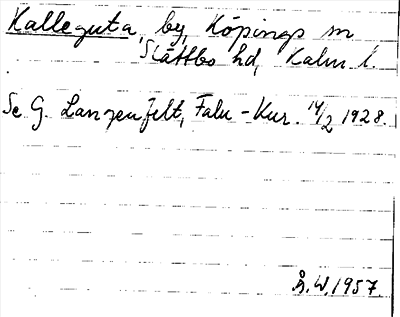 Kalleguta, by, Köpings sn
Slättbo hd, Kalm l.
Se G. Langenfelt, Falu-Kur. 14/2 1928.
Å.W. 1957.